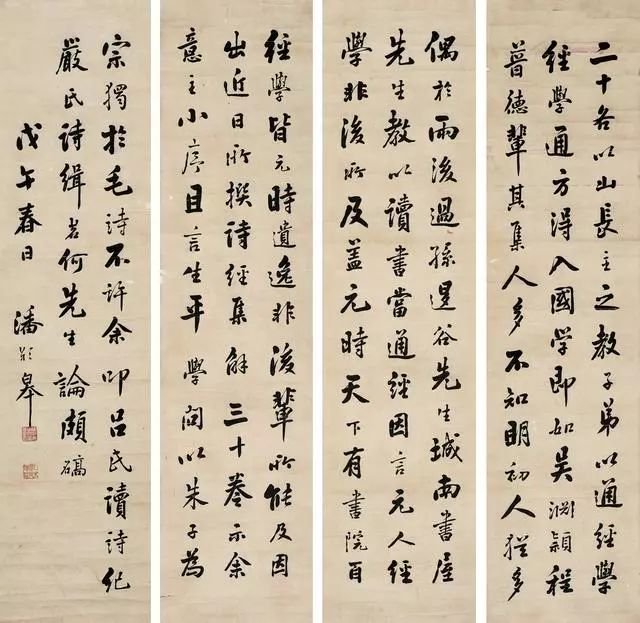 偶於雨後過孫退谷先生城南書屋
先生教以讀書當通經因言元人經
學非後所及蓋元時天下有書院百
二十各以山長主之教子弟以通經學
經學通方得入國學即如吳淵穎程
普德輩其集人多不知明初人猶多
經學皆元時遺逸非後輩所能及因
出近日所撰詩經集解三十卷示余
意主小序且言生平學問以朱子為
宗獨於毛詩不許余叩呂氏讀詩紀
嚴氏詩緝若何先生論頗碻
戊午春日 潘齡皋